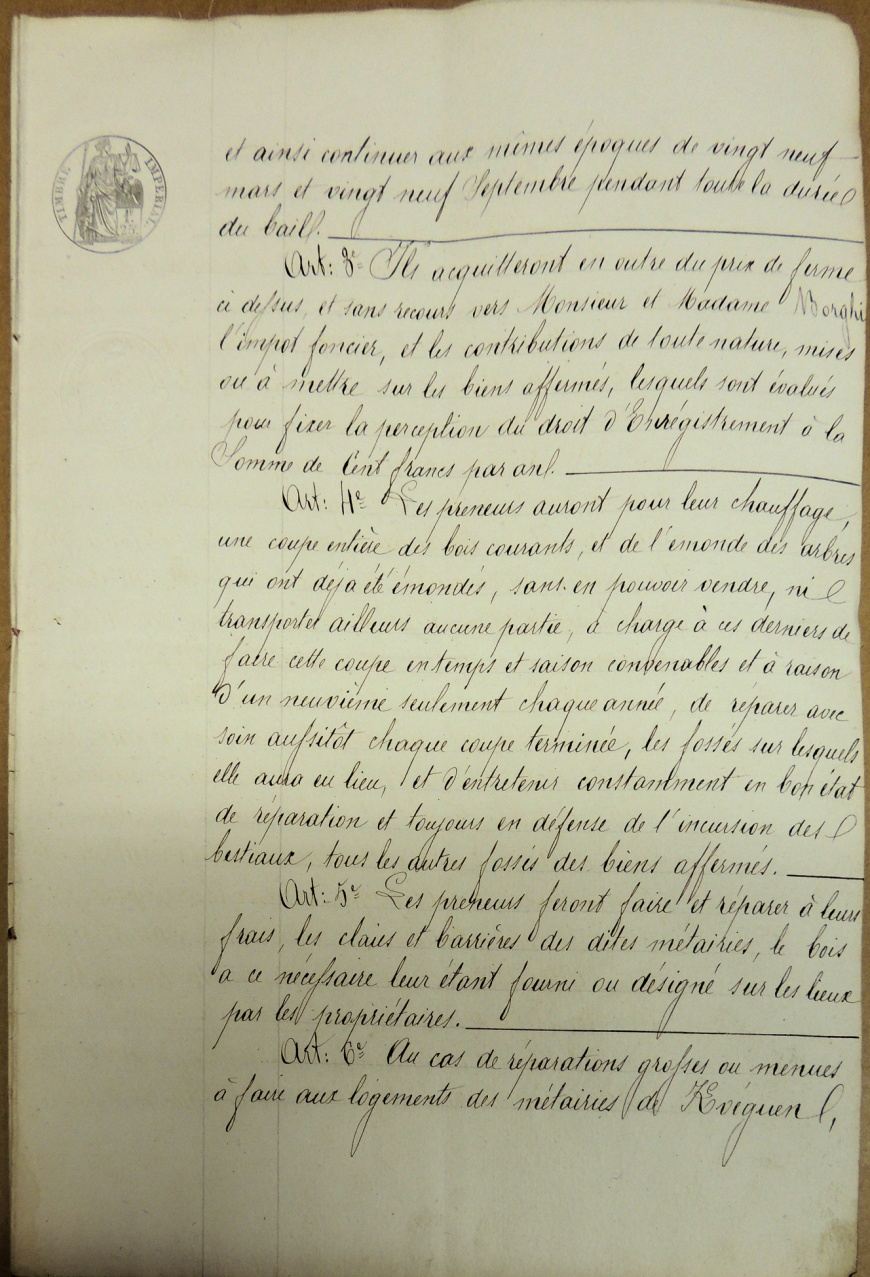 TIMBRE IMPERIAL
et ainsi continuer aux mêmes époques de vingt neuf
mars et vingt neuf Septembre pendant toute la durée
du bail.
Art: 3e Ils acquitteront en outre du prix de ferme
ci dessus, et sans recours vers Monsieur et Madame Borghi
l'impot foncier, et les contributions de toute nature, mises
ou à mettre sur les biens affermés, lesquels sont évalués
pour fixer la perception du droit d'Enrégistrement à la
Somme de Cent francs par an.
Art: 4e Les preneurs auront pour leur chauffage,
une coupe entière des bois courants, et de l'émonde des arbres
qui ont déja été émondés, sans en pouvoir vendre, ni
transporter ailleurs aucune partie, à charge à ces derniers de
faire cette coupe en temps et saison convenables et à raison
d'un neuvième seulement chaque année, de réparer avec
soin aussitôt chaque coupe terminée, les fossés sur lesquels
elle aura eu lieu, et d'entretenir constamment en bon état
de réparation et toujours en défense de l'incursion des
bestiaux, tous les autres fossés des biens affermés.
Art: 5e Les preneurs feront faire et réparer à leurs
frais, les claies et barrières des dites métairies, le bois
a ce nécessaire leur étant fourni ou désigné sur les lieux
par les propriétaires.
Art: 6e Au cas de réparations grosses ou menues
à faire aux logements des métairies de Kvéguen,